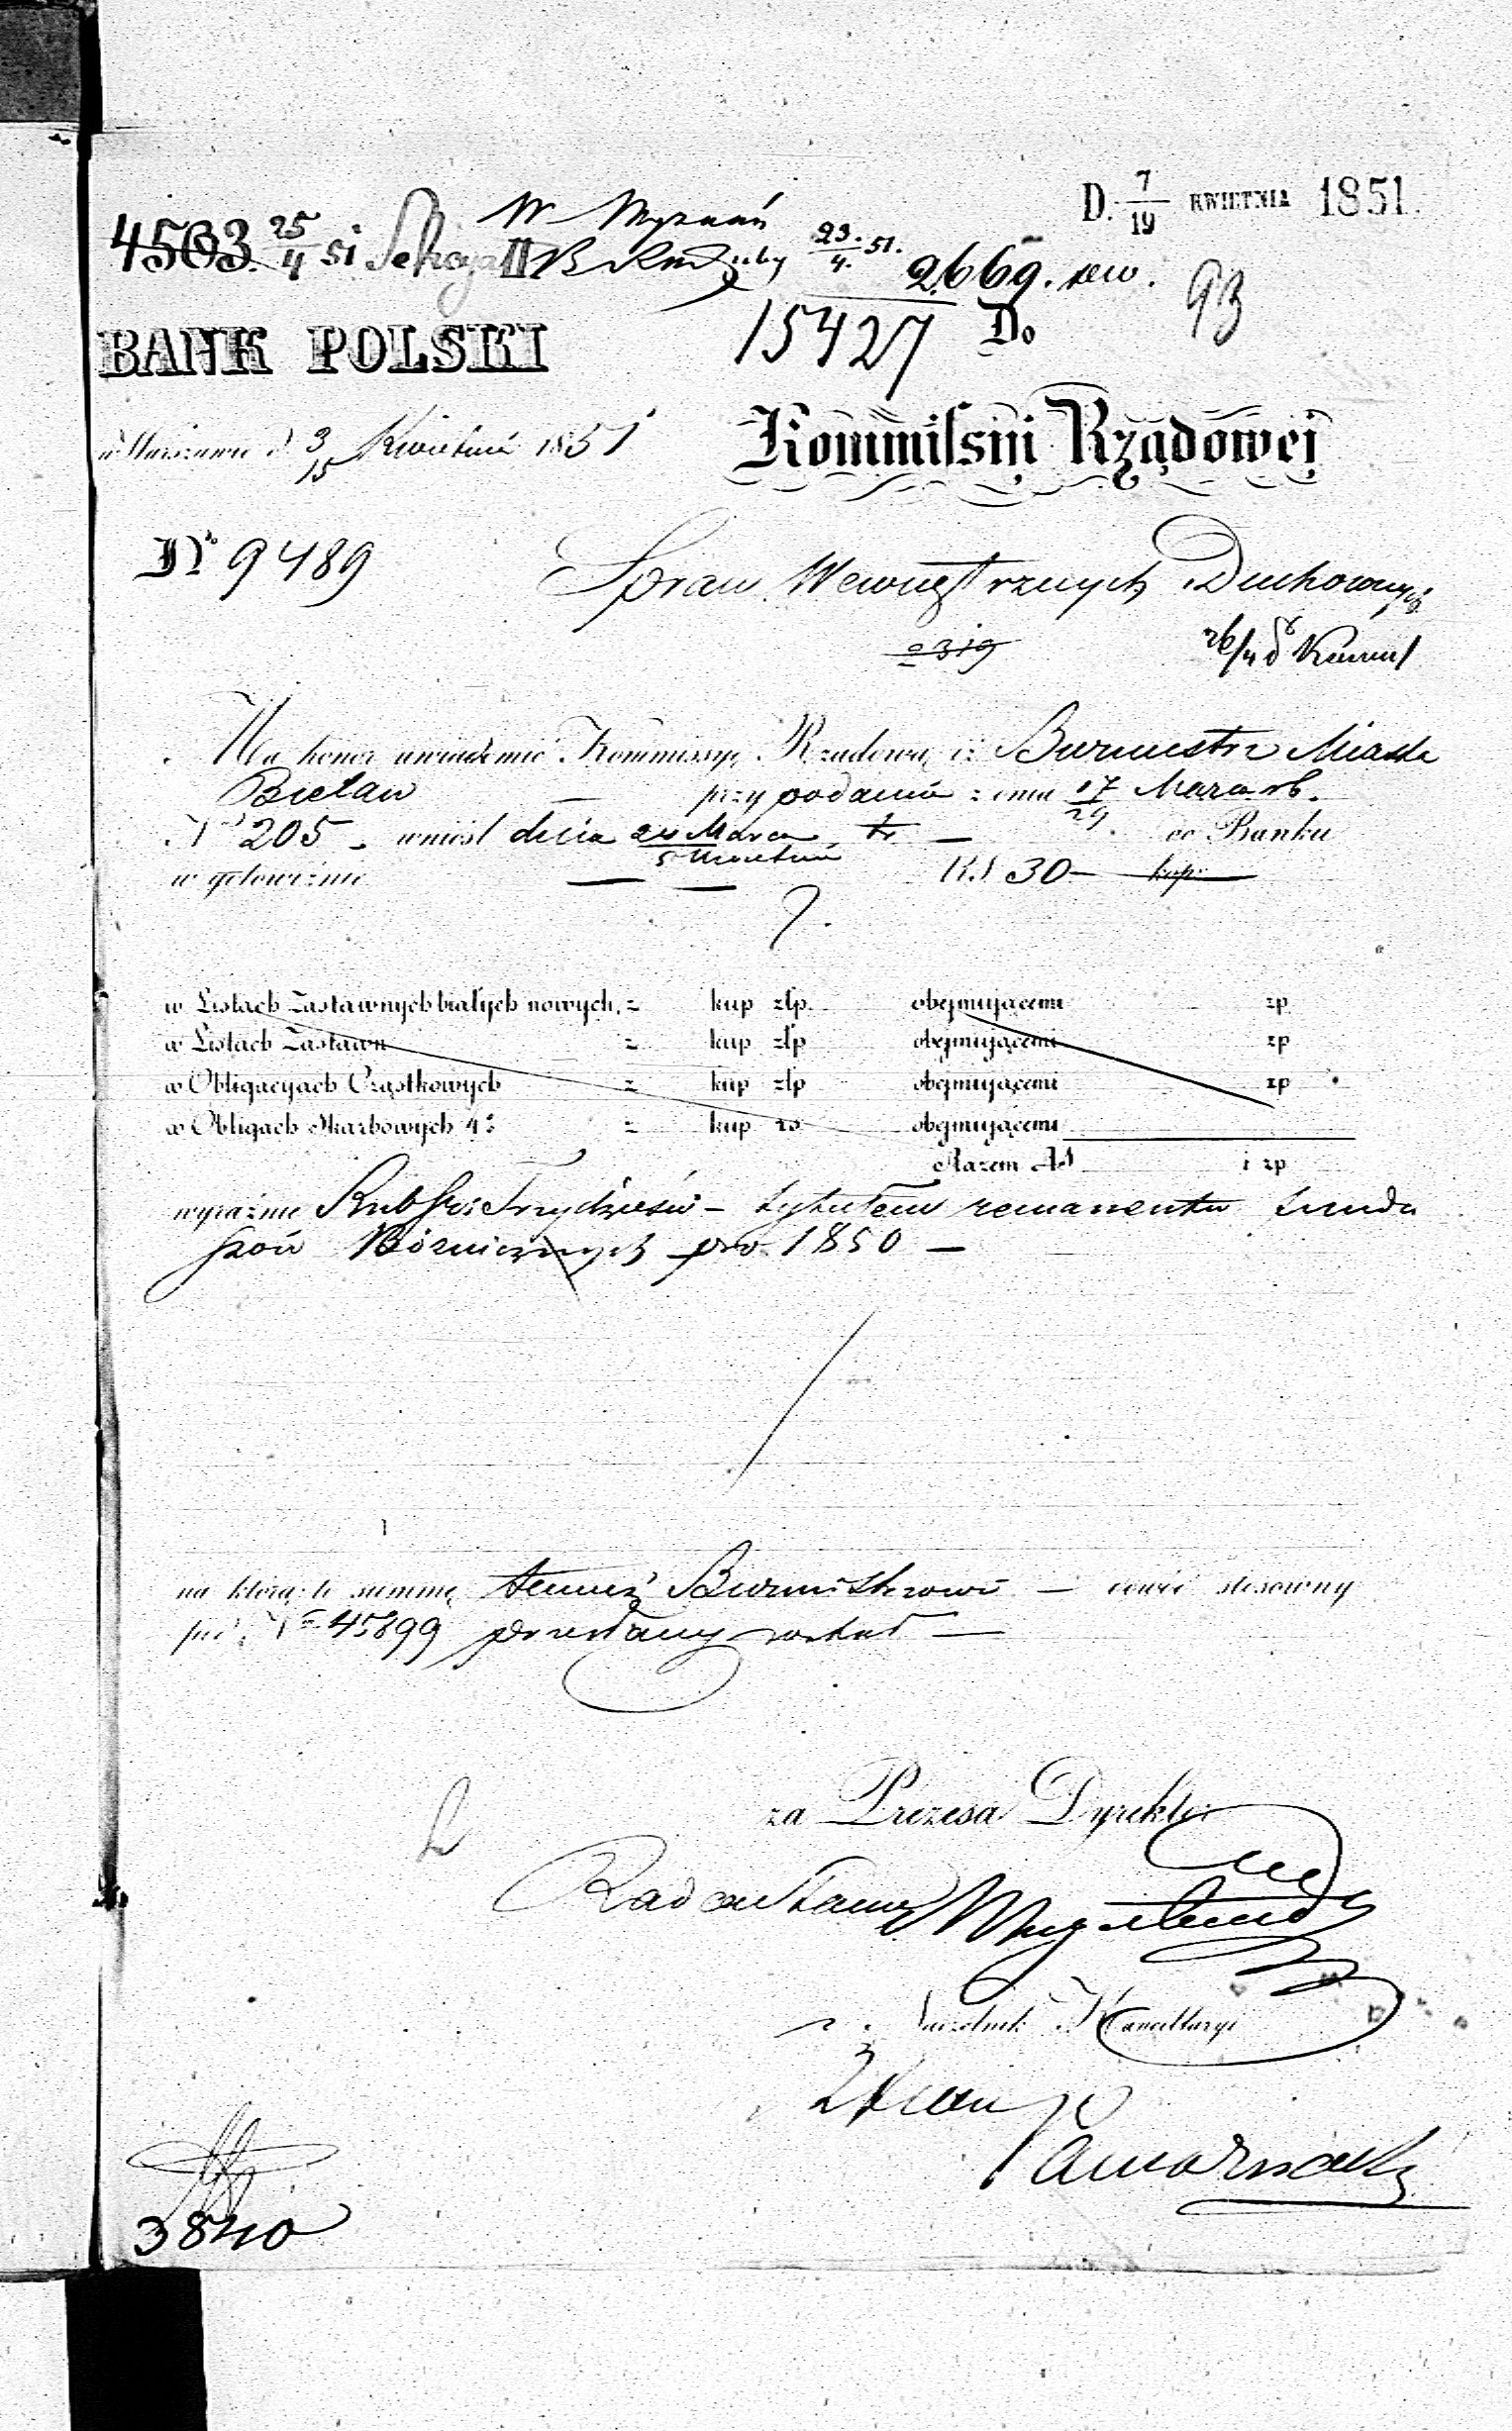 D. 7/19 KWIETNIA 1851.
W Wyznań
4503. 25/4 51 Sekcya II B 23/4. 51.
2669. rew.
93
15427
BANK POLSKI
Do
w Warszawie d. 3/15 Kwietnia 1851
Kommissyi Rządowej
No 9489
Spraw Wewnętrznych Duchownych
26/4
Ma honor uwiadomić Kommissyę Rządową iż Burmistrz Miasta
Bielaw — przy podaniu z dnia 17/29 Marca rb.
No 205 – wniósł dnia 24 Marca/5 Kwietnia tr — do Banku
w gotowiźnie — — R.S 30 — kop:
w Listach Zastawnych białych nowych, z kup złp. obejmującemi zp
w Listach Zastawn z kup złp obejmującemi zp
w Obligacyach Cząstkowych z kup złp obejmującemi zp
w Obligach Skarbowych 4% z kup rs obejmującemi
Razem RS i zp
wyraźnie Rub sr: Trzydzieści – tytułem remanentu fundu
szów Bóżniczych pro 1850 —
na którą to summę temuż Burmistrzowi — dowód stosowny
pod No 45899 przesłany został —
za Prezesa Dyrektor
Radca Stanu
z. Naczelnik Kancellaryi
3840